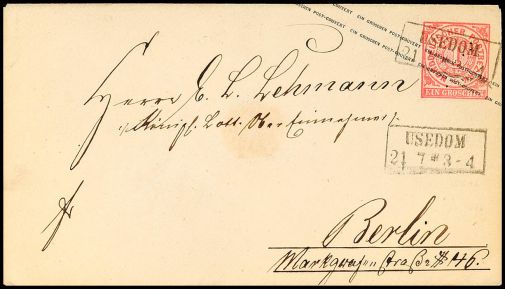 EIN GROSCHEN POST-COUVERT EIN GROSCHEN POST-COUVERT
USEDOM
21
EIN GROSCHEN
Herrn E. L. Lehmann
Königl. Lott. Ober Einnehmer
USEDOM
21 7 * 3-4
Fr
Berlin
Markgrafen Straße № 46.